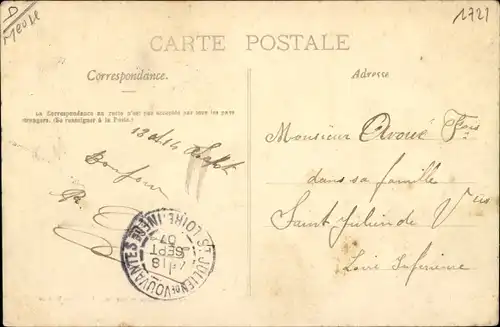 D
Meuse
1721
CARTE POSTALE
Correspondance.
Adresse
La Correspondance au recto n'est pas acceptée par tous les pays
étrangers. (Se renseigner à la Poste.)
Bonjour
Monsieur Fois
dans sa famille
Saint Julien de V
Loire Inférieure
ST JULIEN DE VOUVANTES
LOIRE-INFRE
18
SEPT
07